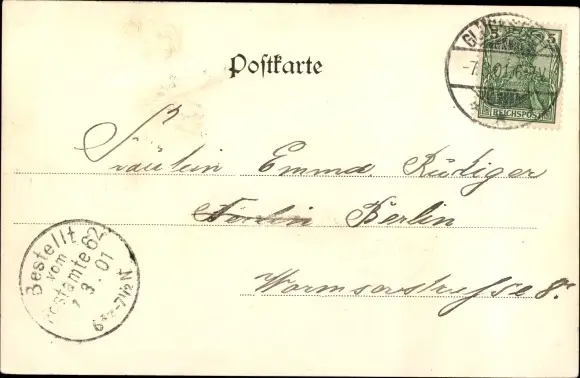 Postkarte
5
REICHSPOST
Fräulein Emma Rüdiger
Berlin Berlin
Wormserstrasse 8.
Bestellt
vom
Postamte 62
7 3.01
6¼-7½N